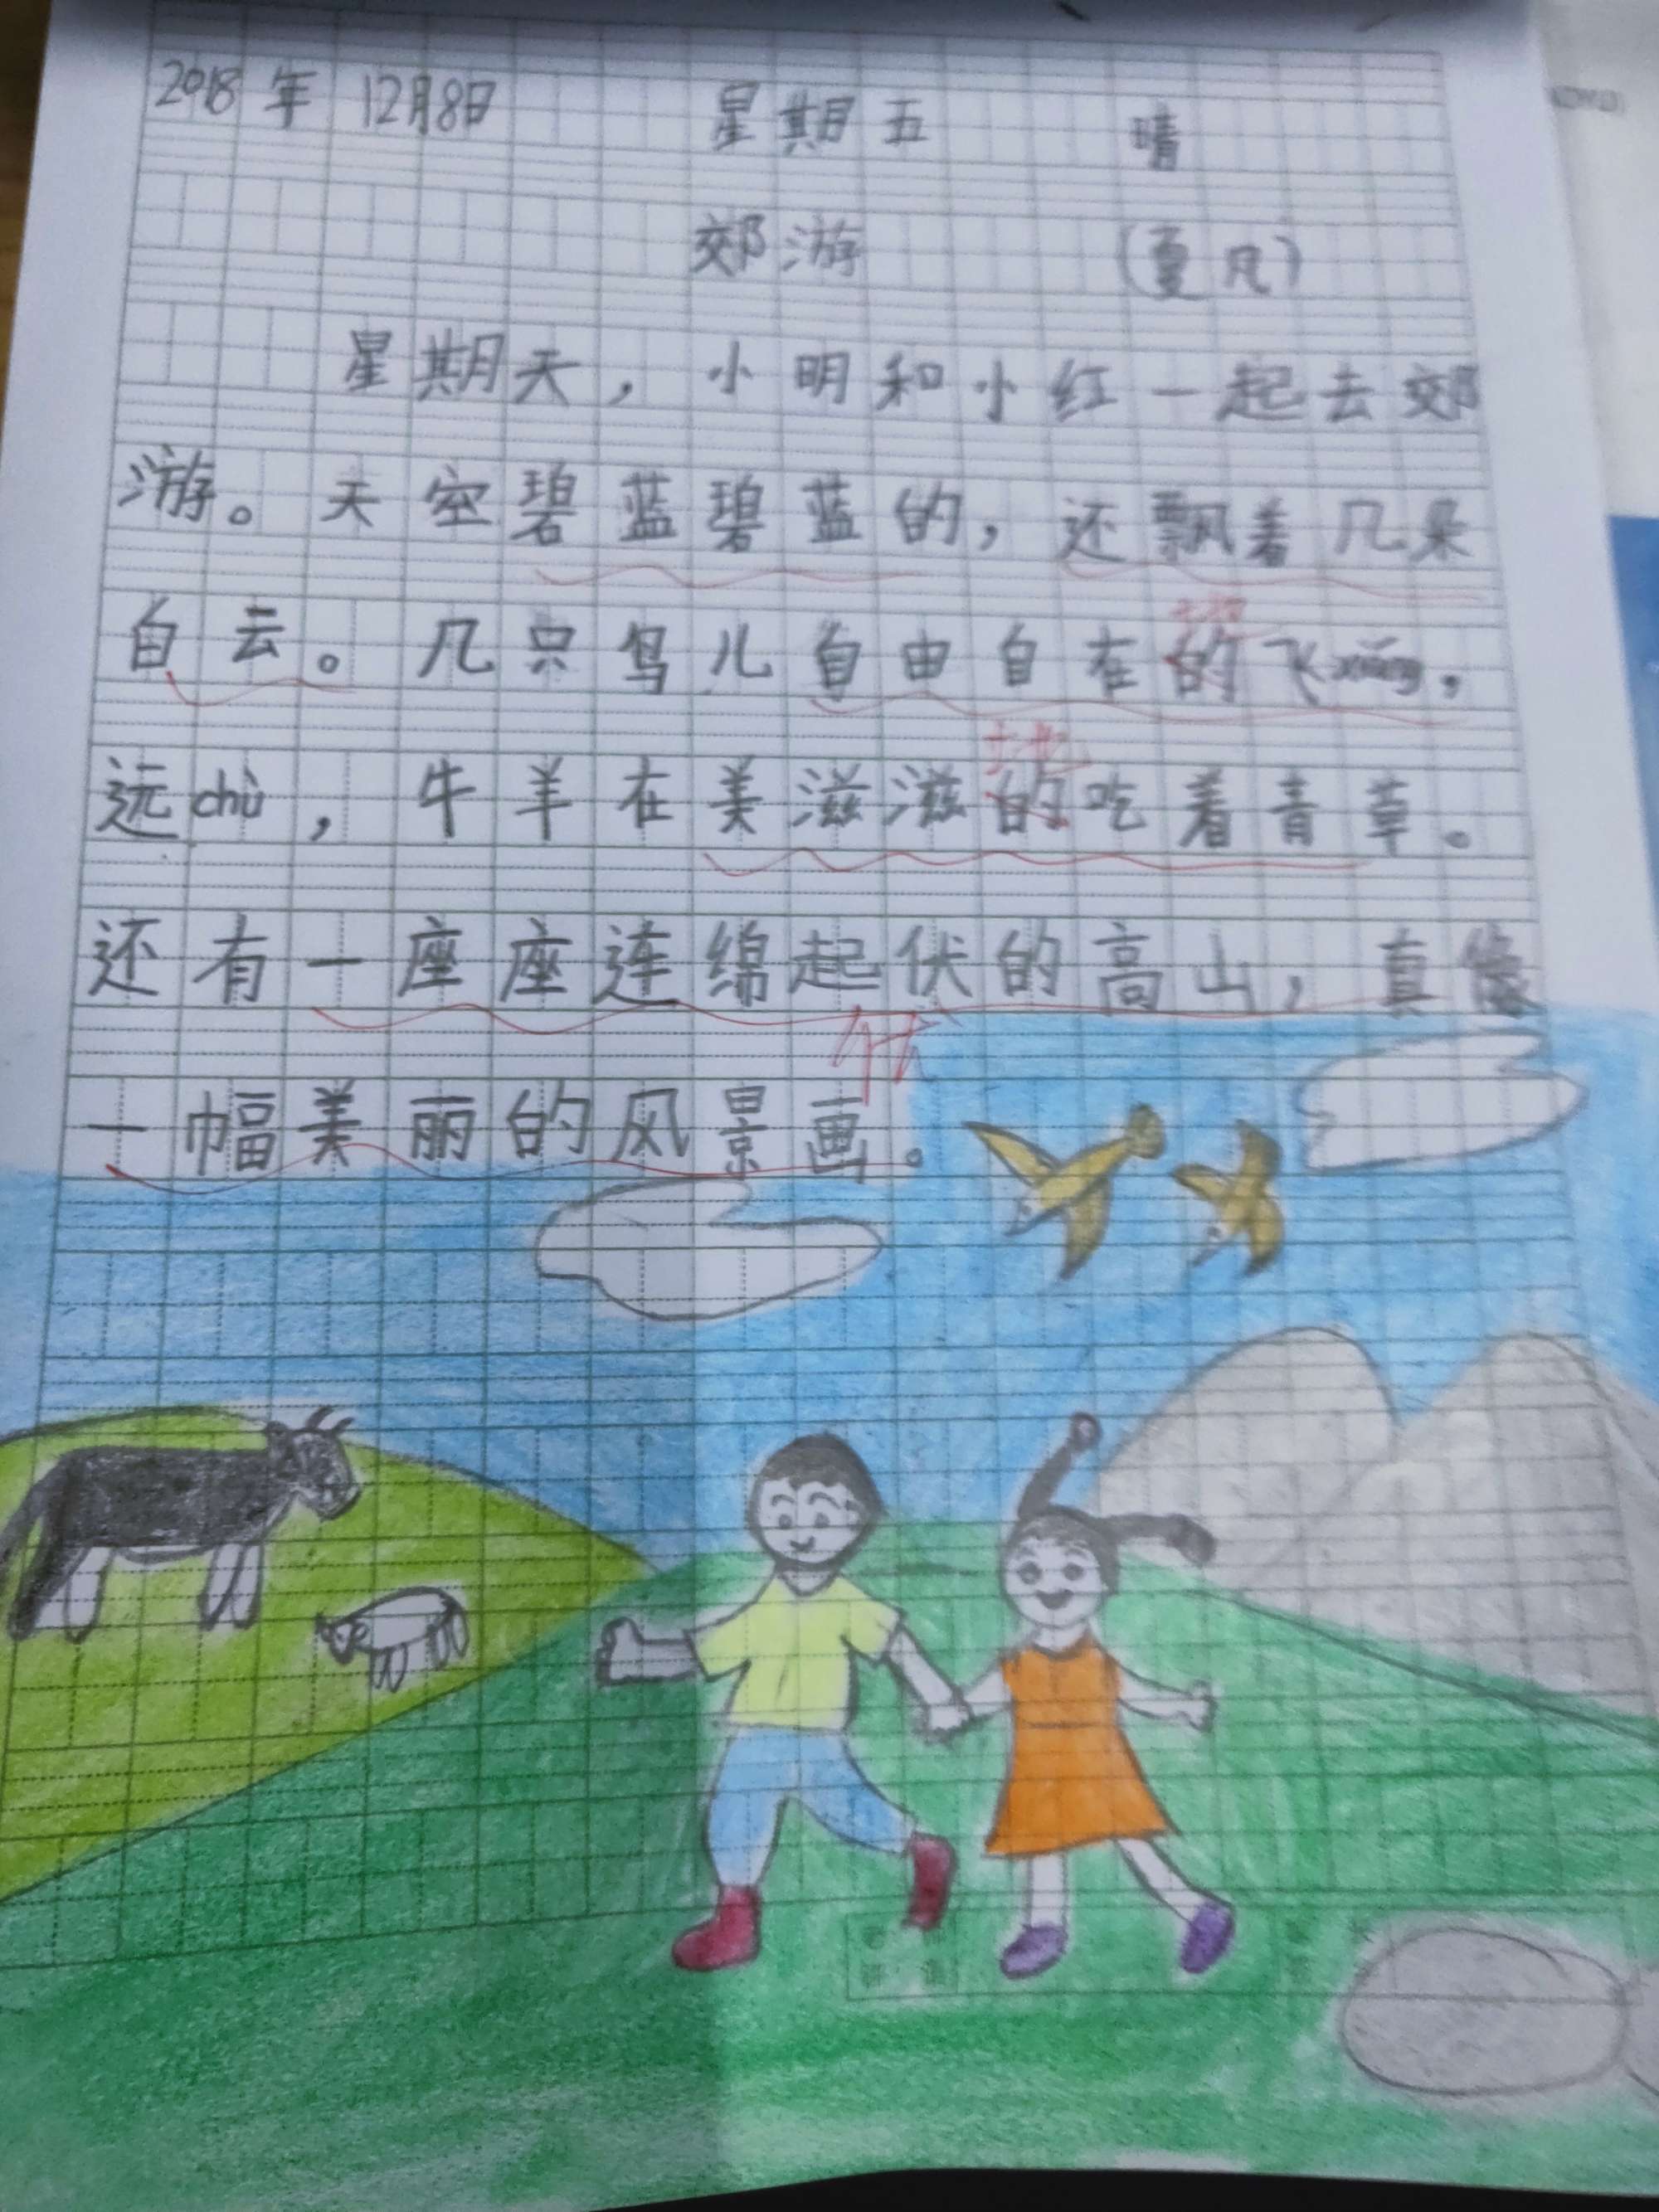 2018年 12月8日 星期五 晴
郊游 (夏凡)
星期天，小明和小红一起去郊
游。天空碧蓝碧蓝的，还飘着几朵
白云。几只鸟儿自由自在的飞xiáng，
地
远chù，牛羊在美滋滋的吃着青草。
地
还有一座座连绵起伏的高山，真像
伏
一幅美丽的风景画。